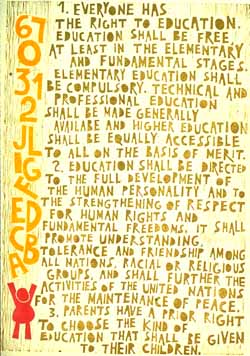 67
031
2
1. EVERYONE HAS
THE RIGHT TO EDUCATION.
EDUCATION SHALL BE FREE,
AT LEAST IN THE ELEMENTARY
AND FUNDAMENTAL STAGES.
ELEMENTARY EDUCATION SHALL
BE COMPULSORY. TECHNICAL AND
PROFESSIONAL EDUCATION
SHALL BE MADE GENERALLY
AVAILABE AND HIGHER EDUCATION
SHALL BE EQUALLY ACCESSIBLE
TO ALL ON THE BASIS OF MERIT.
2. EDUCATION SHALL BE DIRECTED
TO THE FULL DEVELOPMENT OF
THE HUMAN PERSONALITY AND TO
THE STRENGTHENING OF RESPECT
FOR HUMAN RIGHTS AND
FUNDAMENTAL FREEDOMS. IT SHALL
PROMOTE UNDERSTANDING,
TOLERANCE AND FRIENDSHIP AMONG
ALL NATIONS, RACIAL OR RELIGIOUS
GROUPS, AND SHALL FURTHER THE
ACTIVITIES OF THE UNITED NATIONS
FOR THE MAINTENANCE OF PEACE.
3. PARENTS HAVE A PRIOR RIGHT
TO CHOOSE THE KIND OF
EDUCATION THAT SHALL BE GIVEN
TO THEIR CHILDREN.